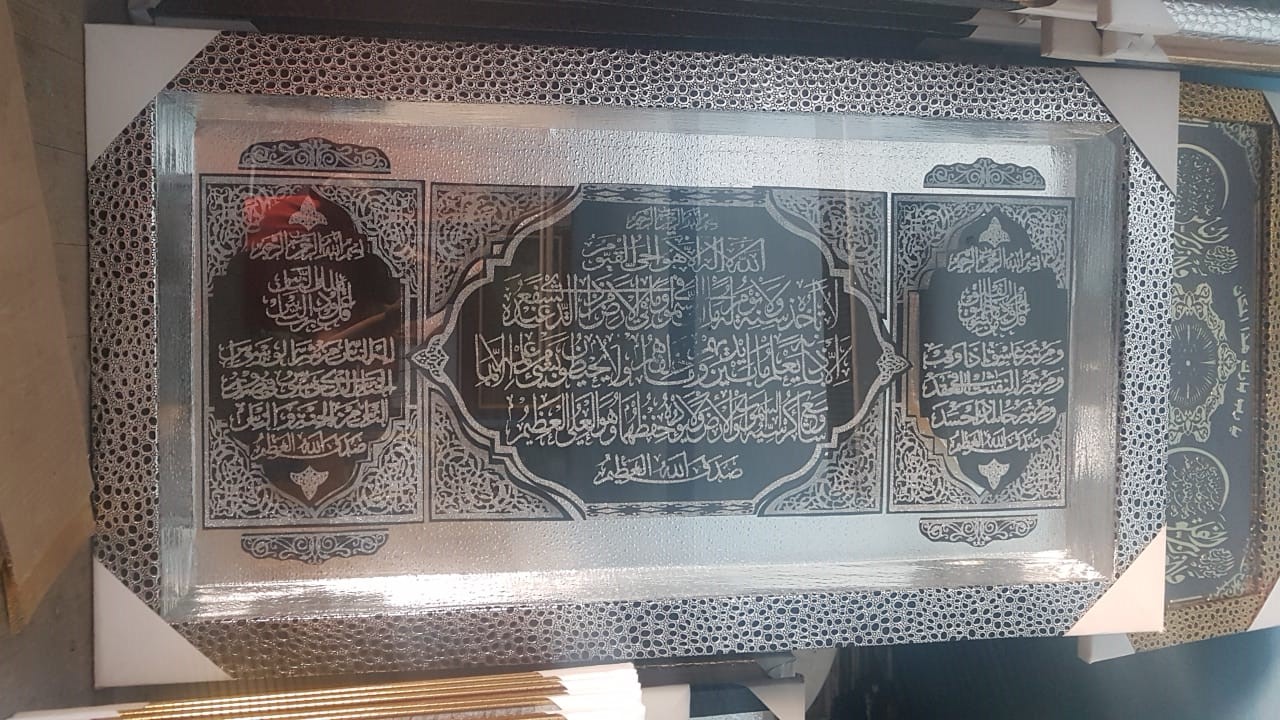 بسم الله الرحمن الرحيم
قل اعوذ برب الفلق من شر ما خلق
ومن شر غاسق اذا وقب
ومن شر النفاثات في العقد
ومن شر حاسد اذا حسد
صدق الله العظيم
بسم الله الرحمن الرحيم
الله لا اله الا هو الحي القيوم
لا تأخذه سنة ولا نوم له ما في السموات وما في الارض من ذا الذي يشفع عنده
الا باذنه يعلم ما بين ايديهم وما خلفهم ولا يحيطون بشيء من علمه الا بما
شاء وسع كرسيه السموات والارض ولا يؤده حفظهما وهو العلي العظيم
صدق الله العظيم
بسم الله الرحمن الرحيم
قل اعوذ برب الناس ملك الناس
اله الناس من شر الوسواس
الخناس الذي يوسوس في صدور
الناس من الجنة والناس
صدق الله العظيم